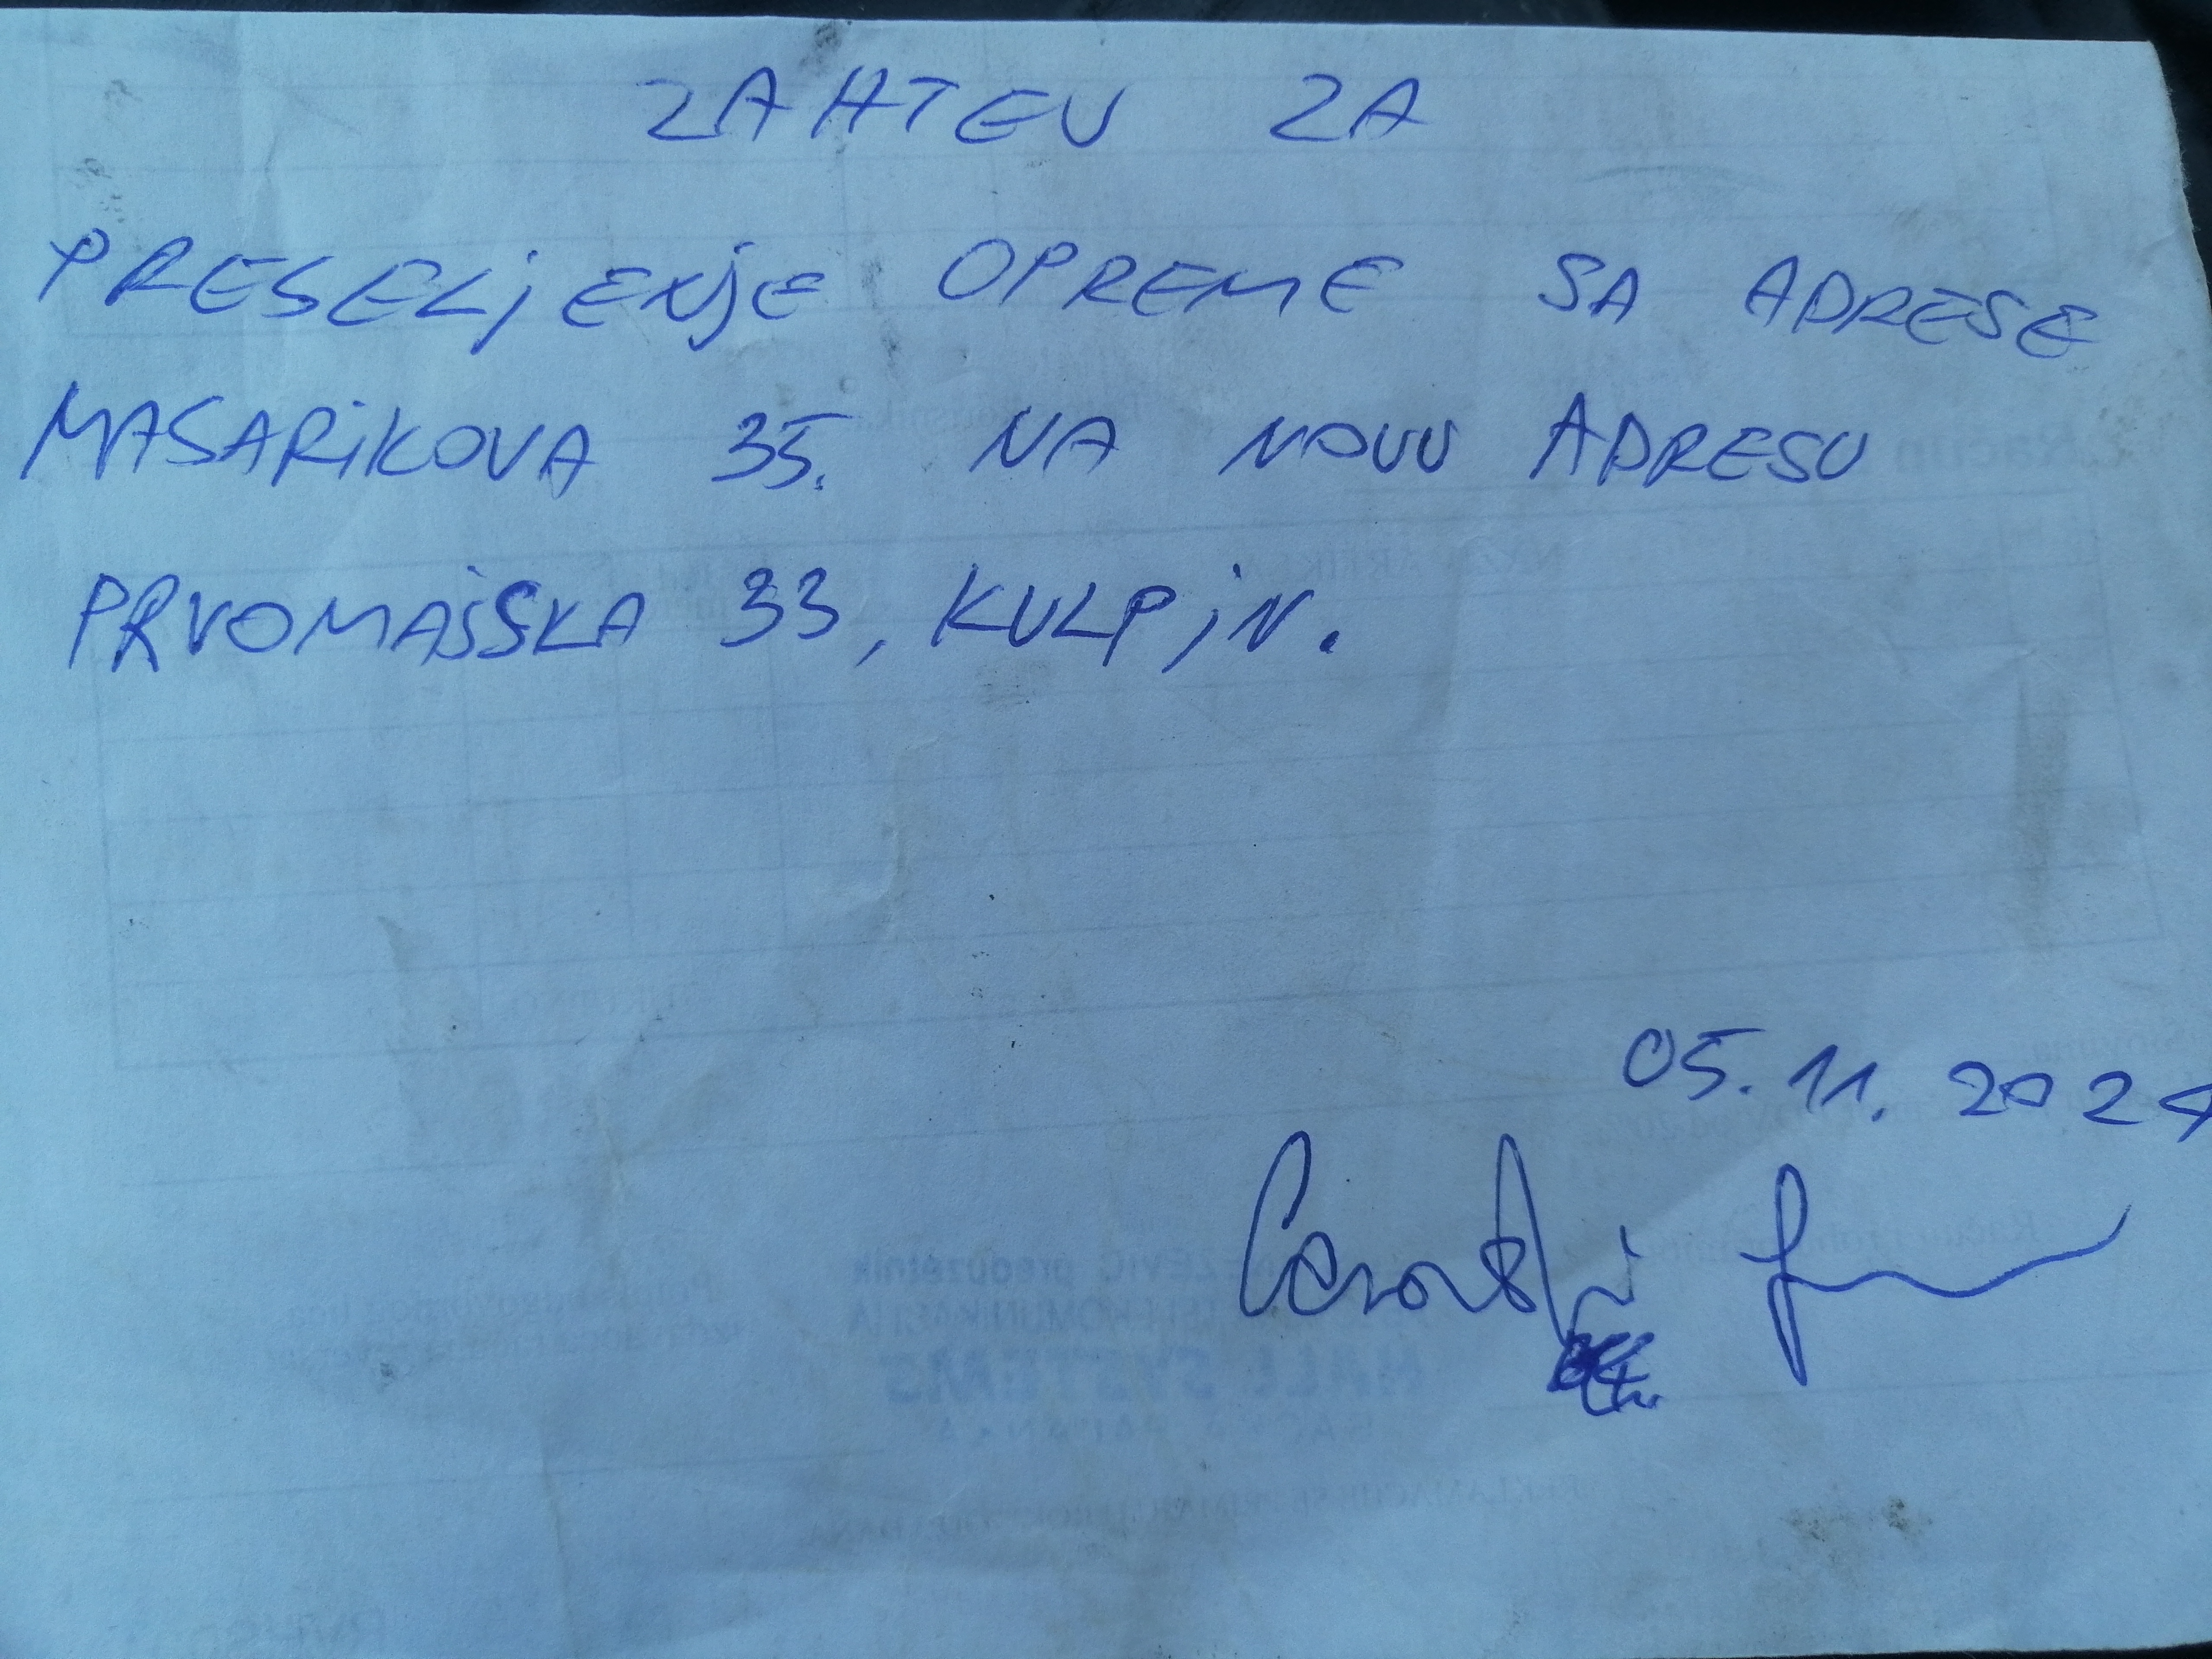 ZAHTEV ZA
PRESELjENjE OPREME SA ADRESE
MASARiKOVA 35. NA NOVU ADRESU
PRVOMAjSKA 33, KULPiN.
05.11.2024